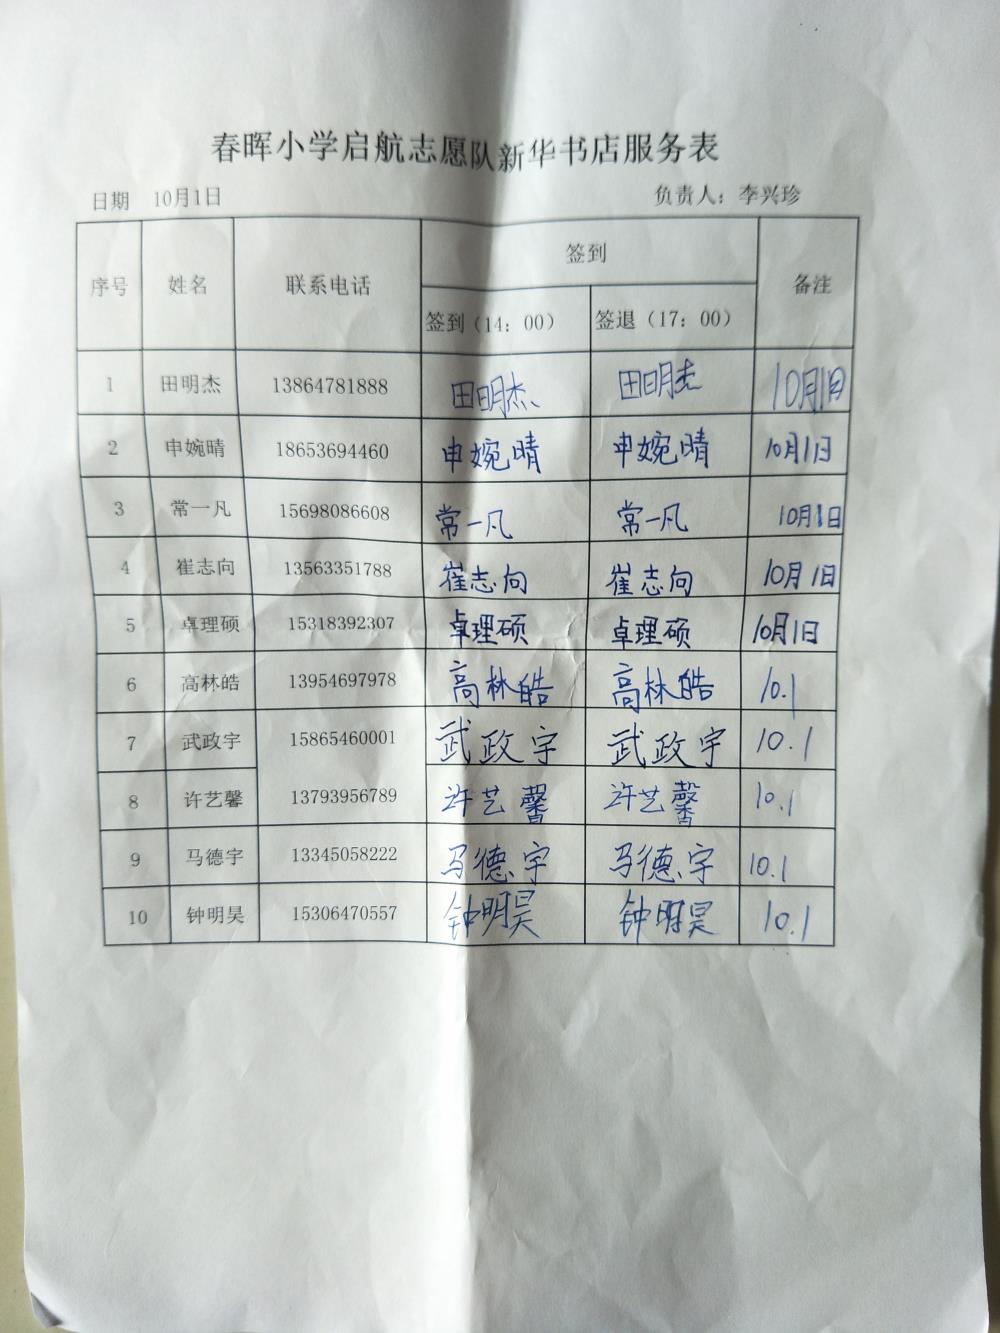 春晖小学启航志愿队新华书店服务表
日期 10月1日 负责人：李兴珍
序号 姓名 联系电话 签到 备注
签到（14：00） 签退（17：00）
1 田明杰 13864781888 田明杰 田明杰 10月1日
2 申婉晴 18653694460 申婉晴 申婉晴 10月1日
3 常一凡 15698086608 常一凡 常一凡 10月1日
4 崔志向 13563351788 崔志向 崔志向 10月1日
5 卓理硕 15318392307 卓理硕 卓理硕 10月1日
6 高林皓 13954697978 高林皓 高林皓 10.1
7 武政宇 15865460001 武政宇 武政宇 10.1
8 许艺馨 13793956789 许艺馨 许艺馨 10.1
9 马德宇 13345058222 马德宇 马德宇 10.1
10 钟明昊 15306470557 钟明昊 钟明昊 10.1